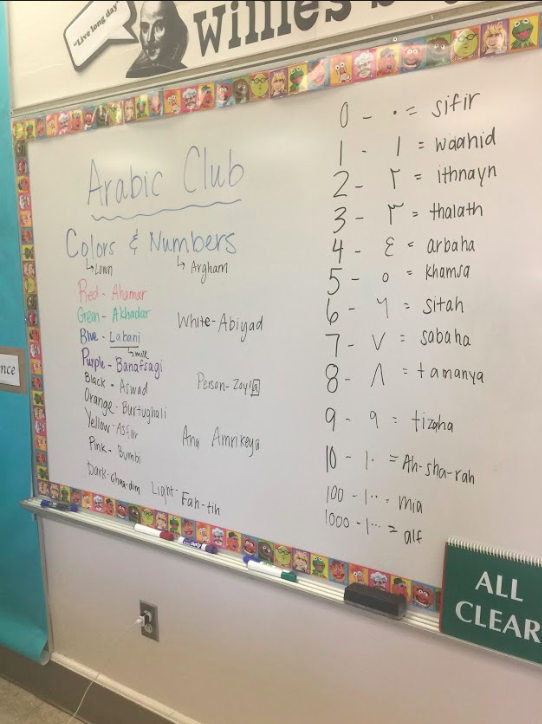 "Live long day"
Willie's
Arabic Club
Colors & Numbers
↳Lown ↳Argham
Red - Ahamar
Green - Akhadar
Blue - Labani
↳milk
Purple - Banafsagi
Black - Aswad
Orange - Burtughali
Yellow - Asfar
Pink - Bumbi
Dark - Ghaa-dim Light - Fah-tih
White - Abiyad
Person - Zoyl
Ana Amrikeya
0 - ٠ = sifir
1 - ١ = waahid
2 - ٢ = ithnayn
3 - ٣ = thalath
4 - ٤ = arbaha
5 - ٥ = khamsa
6 - ٦ = sitah
7 - ٧ = sabaha
8 - ٨ = tamanya
9 - ٩ = tizaha
10 - ١٠ = Ah-sha-rah
100 - ١٠٠ = mia
1000 - ١٠٠٠ = alf
nce
ALL
CLEAR